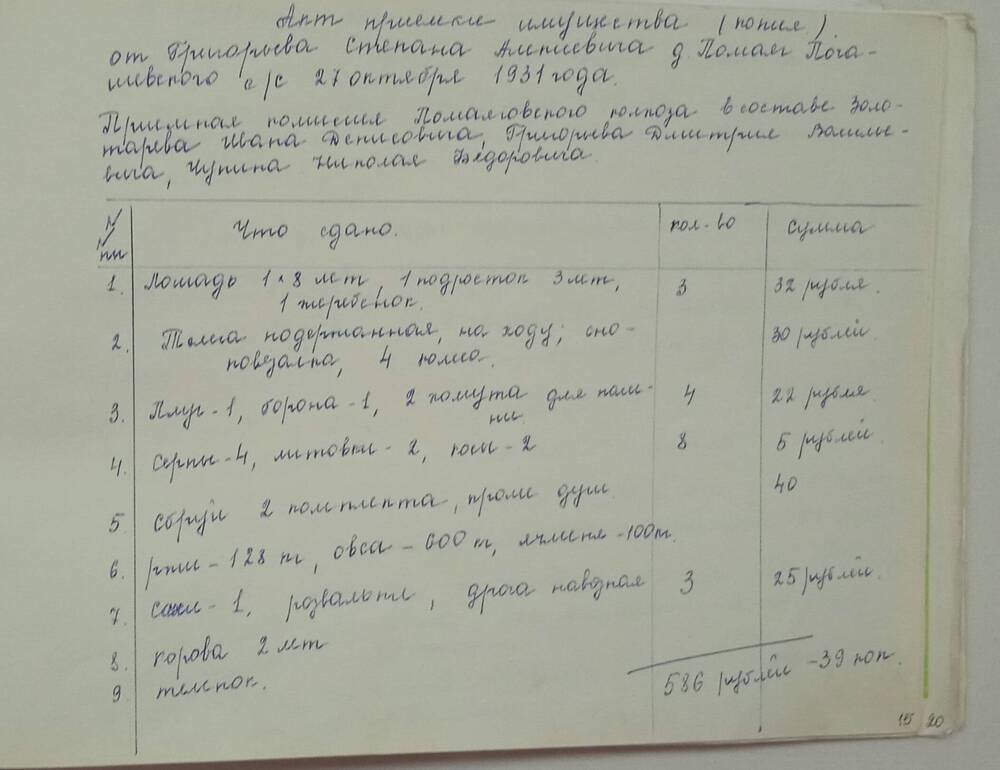 Акт приемки имущества (копия)
от Григорьева Степана Алексеевича д. Помаяг Пога-
шевского с/с 27 октября 1931 года.
Приемная комиссия Помаяговского колхоза в составе Золо-
тарева Ивана Денисовича, Григорьева Дмитрия Василье-
вича, Чупина Николая Фёдоровича.
№ пп Что сдано. кол-во сумма
1. Лошадь 1 8 лет, 1 подросток 3 лет, 3 32 рубля.
1 жеребенок.
2. Телега подержанная, на ходу; сно- 30 рублей
повязалка, 4 колеса.
3. Плуг-1, борона-1, 2 хомута для 4 22 рубля.
4. Серпы-4, литовки-2, косы-2 8 5 рублей
5 Сбруи 2 комплекта, кроме 40
6. ржи-128 кг, овса-600 т, ячменя-100т.
7. Сани-1, розвальни, дрога навозная 3 25 рублей.
8. корова 2 лет
9 телкок. 586 рублей-39 коп.
15 20